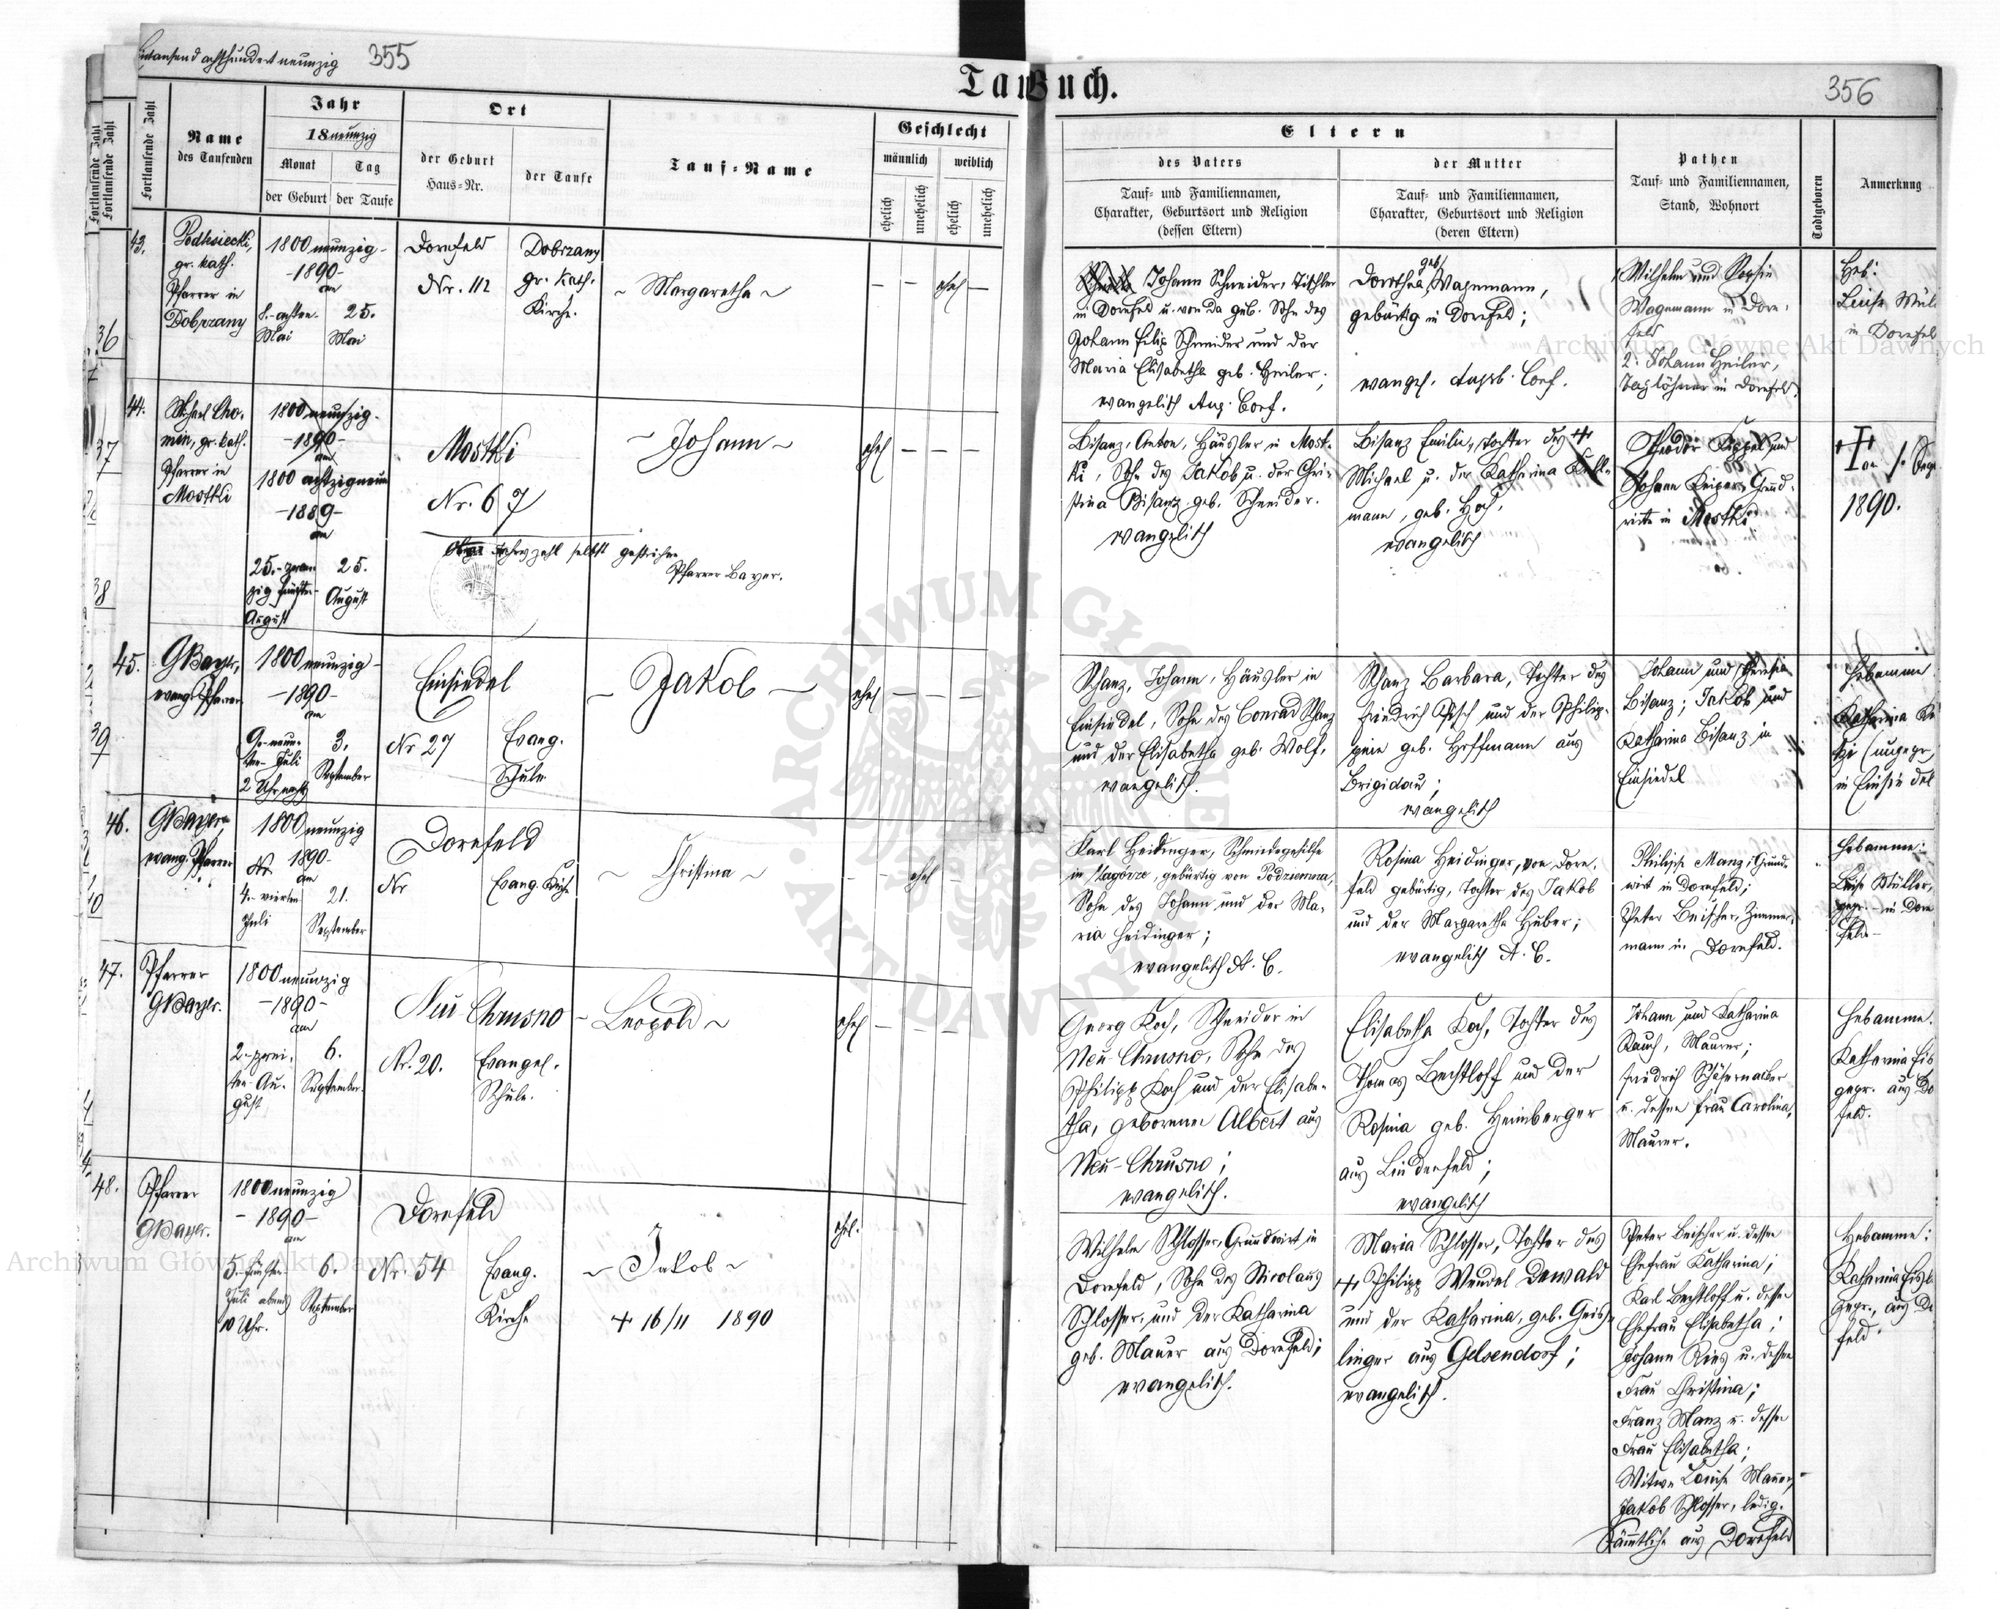 Eintausend achthundert neunzig 355
Taufbuch.
356
Fortlaufende Zahl
Fortlaufende Zahl
Fortlaufende Zahl
Name
des Taufenden
Jahr
18neunzig
Monat
Tag
der Geburt
der Taufe
Ort
der Geburt
Haus-Nr.
der Taufe
Tauf-Name
Geschlecht
männlich
weiblich
ehelich
unehelich
ehelich
unehelich
Eltern
des Vaters
Tauf- und Familiennamen,
Charakter, Geburtsort und Religion
(dessen Eltern)
der Mutter
Tauf- und Familiennamen,
Charakter, Geburtsort und Religion
(deren Eltern)
Pathen
Tauf- und Familiennamen,
Stand, Wohnort
Todtgeboren
Anmerkung
36
37
38
39
43.
Podksiecki,
gr. kath.
Pfarrer in
Dobrzany
1800 neunzig-
-1890-
am
8.-achten-
Mai
25.
Mai
Dornfeld
Nr. 112
Dobrzany
gr. kath.
Kirche.
~ Margaretha ~
ehel
Johann Schneider, Tischler
in Dornfeld u. von da geb. Sohn des
Johann Filip Schneider und der
Maria Elisabetha geb. Heiler;
evangelisch Aug. Conf.
geb.
Dorothea, Wagemann,
gebürtig in Dornfeld;
evangl. Augsb. Conf.
Wilhelm und Sophie
Wagemann in Dorn-
feld
2. Johann Heiler,
Taglöhner in Dornfeld.
Heb:
Luise Mül
in Dornfel
44.
gr. kath.
Pfarrer in
Mostki
1800 neunzig-
-1890-
am
1800 achtzigneun
-1889-
am
25.-zwan-
zig fünften
August
25.
August
Mostki
Nr. 67
Jahreszahl selbst gestrichen
Pfarrer Bayer.
~ Johann ~
ehel
Bisanz, Anton, Häusler in Most-
ki, Sohn des Jakob u. der Chri-
stina Bisanz geb. Schneider.
evangelisch
Bisanz Emilie, Tochter des +
Michael u. der Katharina
mann, geb. Hoh,
evangelisch
Theodor Keppel und
Johann Keiper, Grund-
wirte in Mostki
1890.
45.
GBayer,
evang. Pfarrer
1800 neunzig-
-1890-
am
9.-neun-
ten Juli
2 Uhr nachts
3.
September
Einsiedel
Nr 27
Evang.
Schule
~ Jakob ~
ehel
Schanz, Johann, Häusler in
Einsiedel, Sohn des Conrad Schanz
und der Elisabetha geb. Wolf,
evangelisch.
Schanz Barbara, Tochter des
Friedrich Hisch und der Philip-
pine geb. Hoffmann aus
Brigidau;
evangelisch
Johann und Theresia
Bisanz; Jakob und
Katharina Bisanz in
Einsiedel
Hebamme
Katharina
in Einsiedel
46.
GBayer,
evang. Pfarrer
1800 neunzig
1890-
am
4.-vierten
Juli
21.
September
Dornfeld
Nr
Evang. Kirche
~ Christina ~
ehel
Karl Heidinger, Schmiedegehilfe
in Nagórze, gebürtig von
Sohn des Johann und der Ma-
ria Heidinger;
evangelisch A. C.
Rosina Heidinger, von Dorn-
feld gebürtig, Tochter des Jakob
und der Margaretha Huber;
evangelisch A. C.
Philipp Manz, Grund-
wirt in Dornfeld;
Peter Beischer, Zimmer-
mann in Dornfeld.
Hebamme:
Luise Müller,
gepr. in Dorn
feld
47.
Pfarrer
GBayer.
1800 neunzig
-1890-
am
2.-zwei-
ten Au-
gust
6.
September.
Neu Chrusno
Nr. 20.
Evangel.
Schule.
~ Leopold ~
ehel
Georg Koch, Schneider in
Neu-Chrusno, Sohn des
Philipp Koch und der Elisabe-
tha, geborenen Albert aus
Neu-Chrusno;
evangelisch.
Elisabetha Koch, Tochter des
Thomas Bechtloff und der
Rosina geb. Heimberger
aus Lindenfeld;
evangelisch
Johann und Katharina
Rauch, Maurer;
Friedrich
u. dessen Frau Carolina,
Maurer.
Hebamme.
Katharina Eis
gepr. aus Do
feld.
48.
Pfarrer
GBayer.
1800 neunzig
-1890-
am
5.-fünften
Juli abends
10 Uhr.
6.
September
Dornfeld
Nr. 54
Evang.
Kirche
~ Jakob ~
+ 16/11 1890
ehel.
Wilhelm Schlosser, Grundwirt in
Dornfeld, Sohn des Nicolaus
Schlosser, und der Katharina
geb. Mauer aus Dornfeld;
evangelisch.
Maria Schlosser, Tochter des
+ Philipp Wendel Dewald
und der Katharina, geb. Geiss-
linger aus Gelsendorf;
evangelisch.
Peter Beischer u. dessen
Ehefrau Katharina;
Karl Bechtloff u. dessen
Ehefrau Elisabetha;
Johann Ries u. dessen
Frau Christina;
Franz Manz u. dessen
Frau Elisabetha;
Witwe Louise Mauer,
Jakob Schlosser, ledig.
Sämmtliche aus Dornfeld
Hebamme:
Katharina Eisl
gepr., aus Do
feld.
Archiwum Główne Akt Dawnych
Archiwum Główne Akt Dawnych
ARCHIWUM GŁÓWNE AKT DAWNYCH